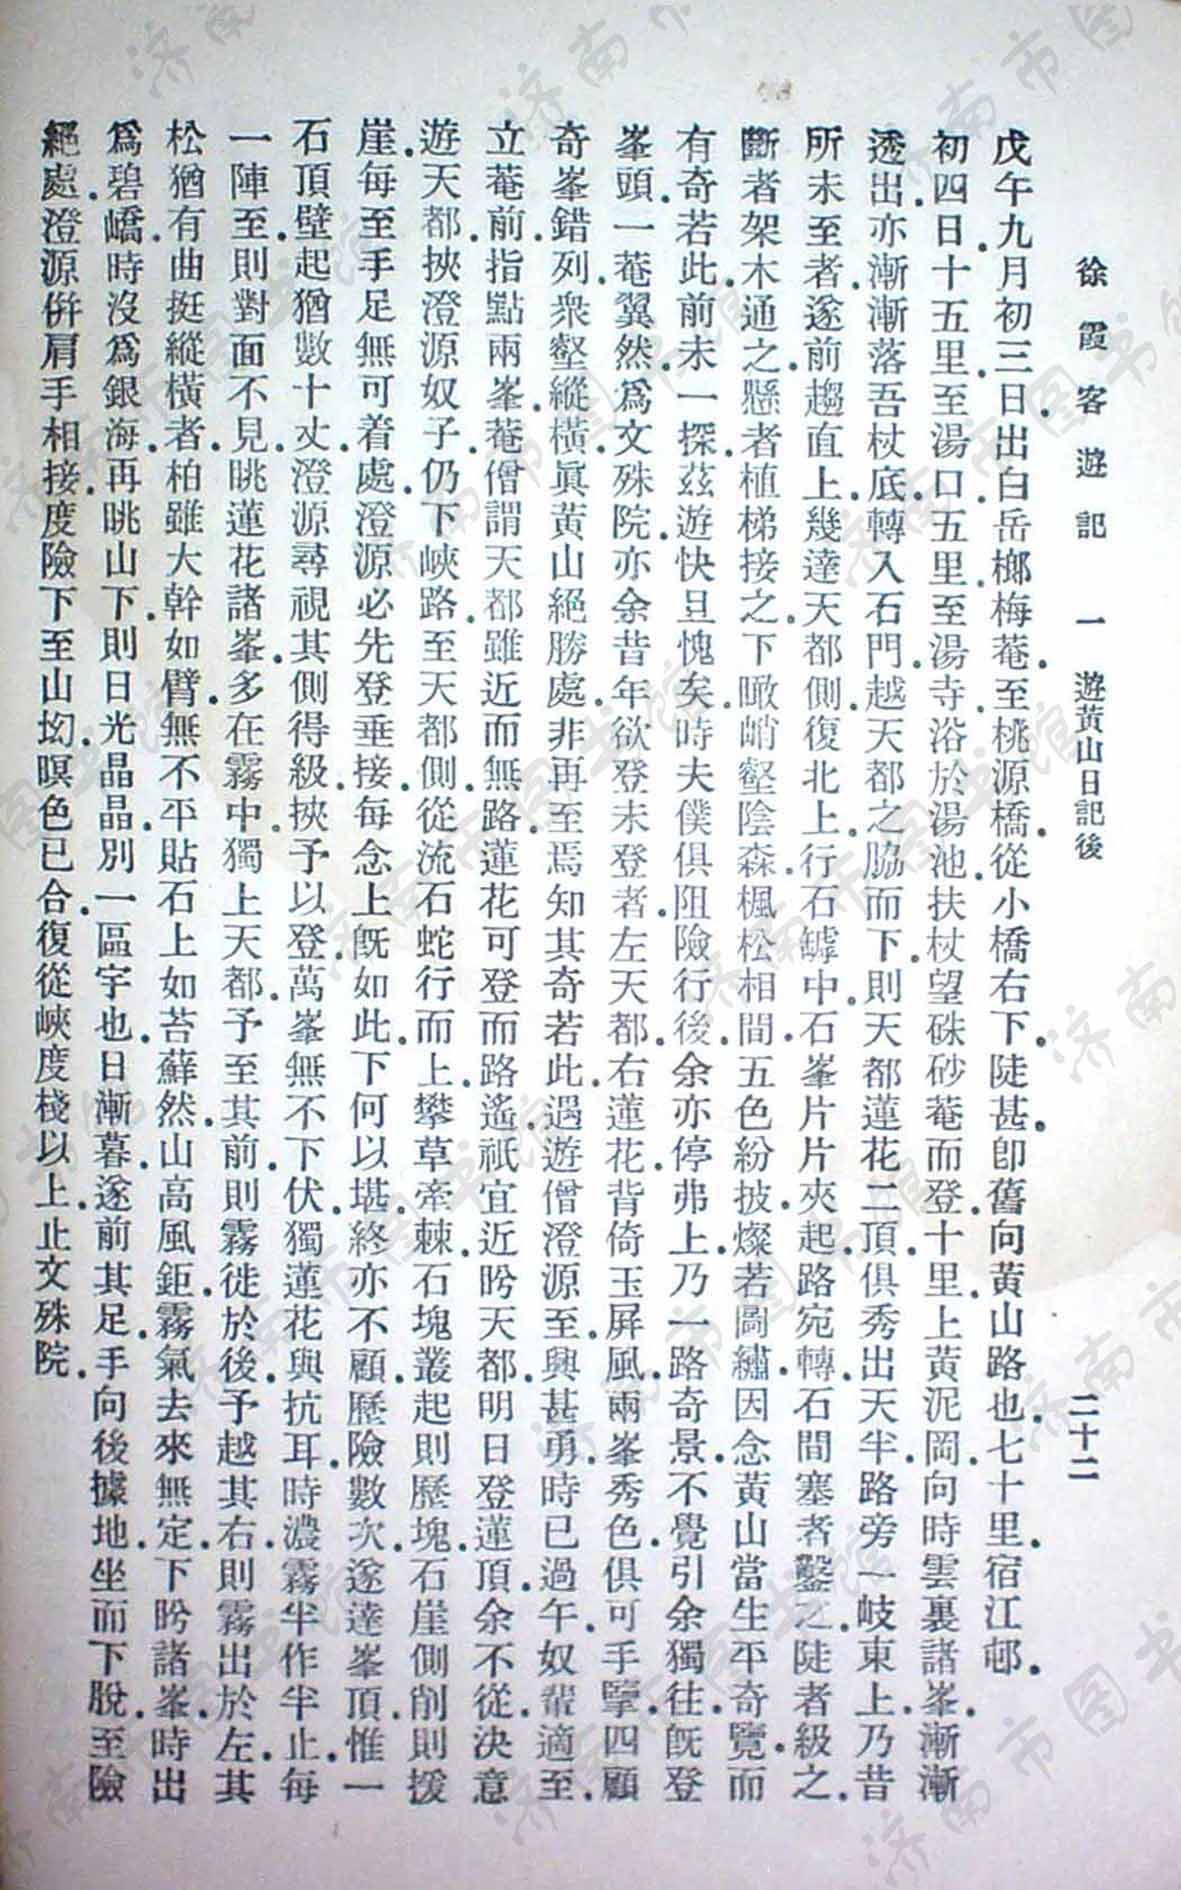 徐霞客遊記 一 遊黃山日記後 二十二
戊午九月初三日.出白岳榔梅菴.至桃源橋.從小橋右下.陡甚.卽舊向黃山路也.七十里.宿江邨.
初四日.十五里.至湯口.五里.至湯寺.浴於湯池.扶杖望硃砂菴而登.十里.上黃泥岡.向時雲裏諸峯.漸漸
透出.亦漸漸落吾杖底.轉入石門.越天都之脇而下.則天都蓮花二頂.俱秀出天半.路旁一岐東上.乃昔
所未至者.遂前趨直上.幾達天都側.復北上.行石罅中.石峯片片夾起.路宛轉.石間塞者鑿之.陡者級之.
斷者架木通之.懸者植梯接之.下瞰峭壑陰森.楓松相間.五色紛披.燦若圖繡.因念黃山當生平奇覽.而
有奇若此.前未一探.茲遊快且愧矣.時夫僕俱阻險行後.余亦停弗上.乃一路奇景.不覺引余獨往.既登
峯頭.一菴翼然.爲文殊院.亦余昔年欲登未登者.左天都.右蓮花.背倚玉屏風.兩峯秀色.俱可手擥.四顧
奇峯錯列.衆壑縱橫.眞黃山絕勝處.非再至.焉知其奇若此.遇遊僧澄源至.興甚勇.時已過午.奴輩適至.
立菴前.指點兩峯.菴僧謂天都雖近而無路.蓮花可登而路遙.祇宜近盻天都.明日登蓮頂.余不從.決意
遊天都.挾澄源奴子.仍下峽路.至天都側.從流石蛇行而上.攀草牽棘.石塊叢起則歷塊.石崖側削則援
崖.每至手足無可着處.澄源必先登垂接.每念上既如此.下何以堪.終亦不顧.歷險數次.遂達峯頂.惟一
石頂壁起猶數十丈.澄源尋視其側.得級.挾予以登.萬峯無不下伏.獨蓮花與抗耳.時濃霧半作半止.每
一陣至.則對面不見.眺蓮花諸峯.多在霧中.獨上天都.予至其前.則霧徙於後.予越其右.則霧出於左.其
松猶有曲挺縱橫者.柏雖大幹如臂.無不平貼石上.如苔蘚然.山高風鉅.霧氣去來無定.下盻諸峯.時出
爲碧嶠.時沒爲銀海.再眺山下.則日光晶晶.別一區宇也.日漸暮.遂前其足.手向後據地.坐而下脫.至險
絕處.澄源倂肩手相接.度險.下至山坳.暝色已合.復從峽度棧以上.止文殊院.